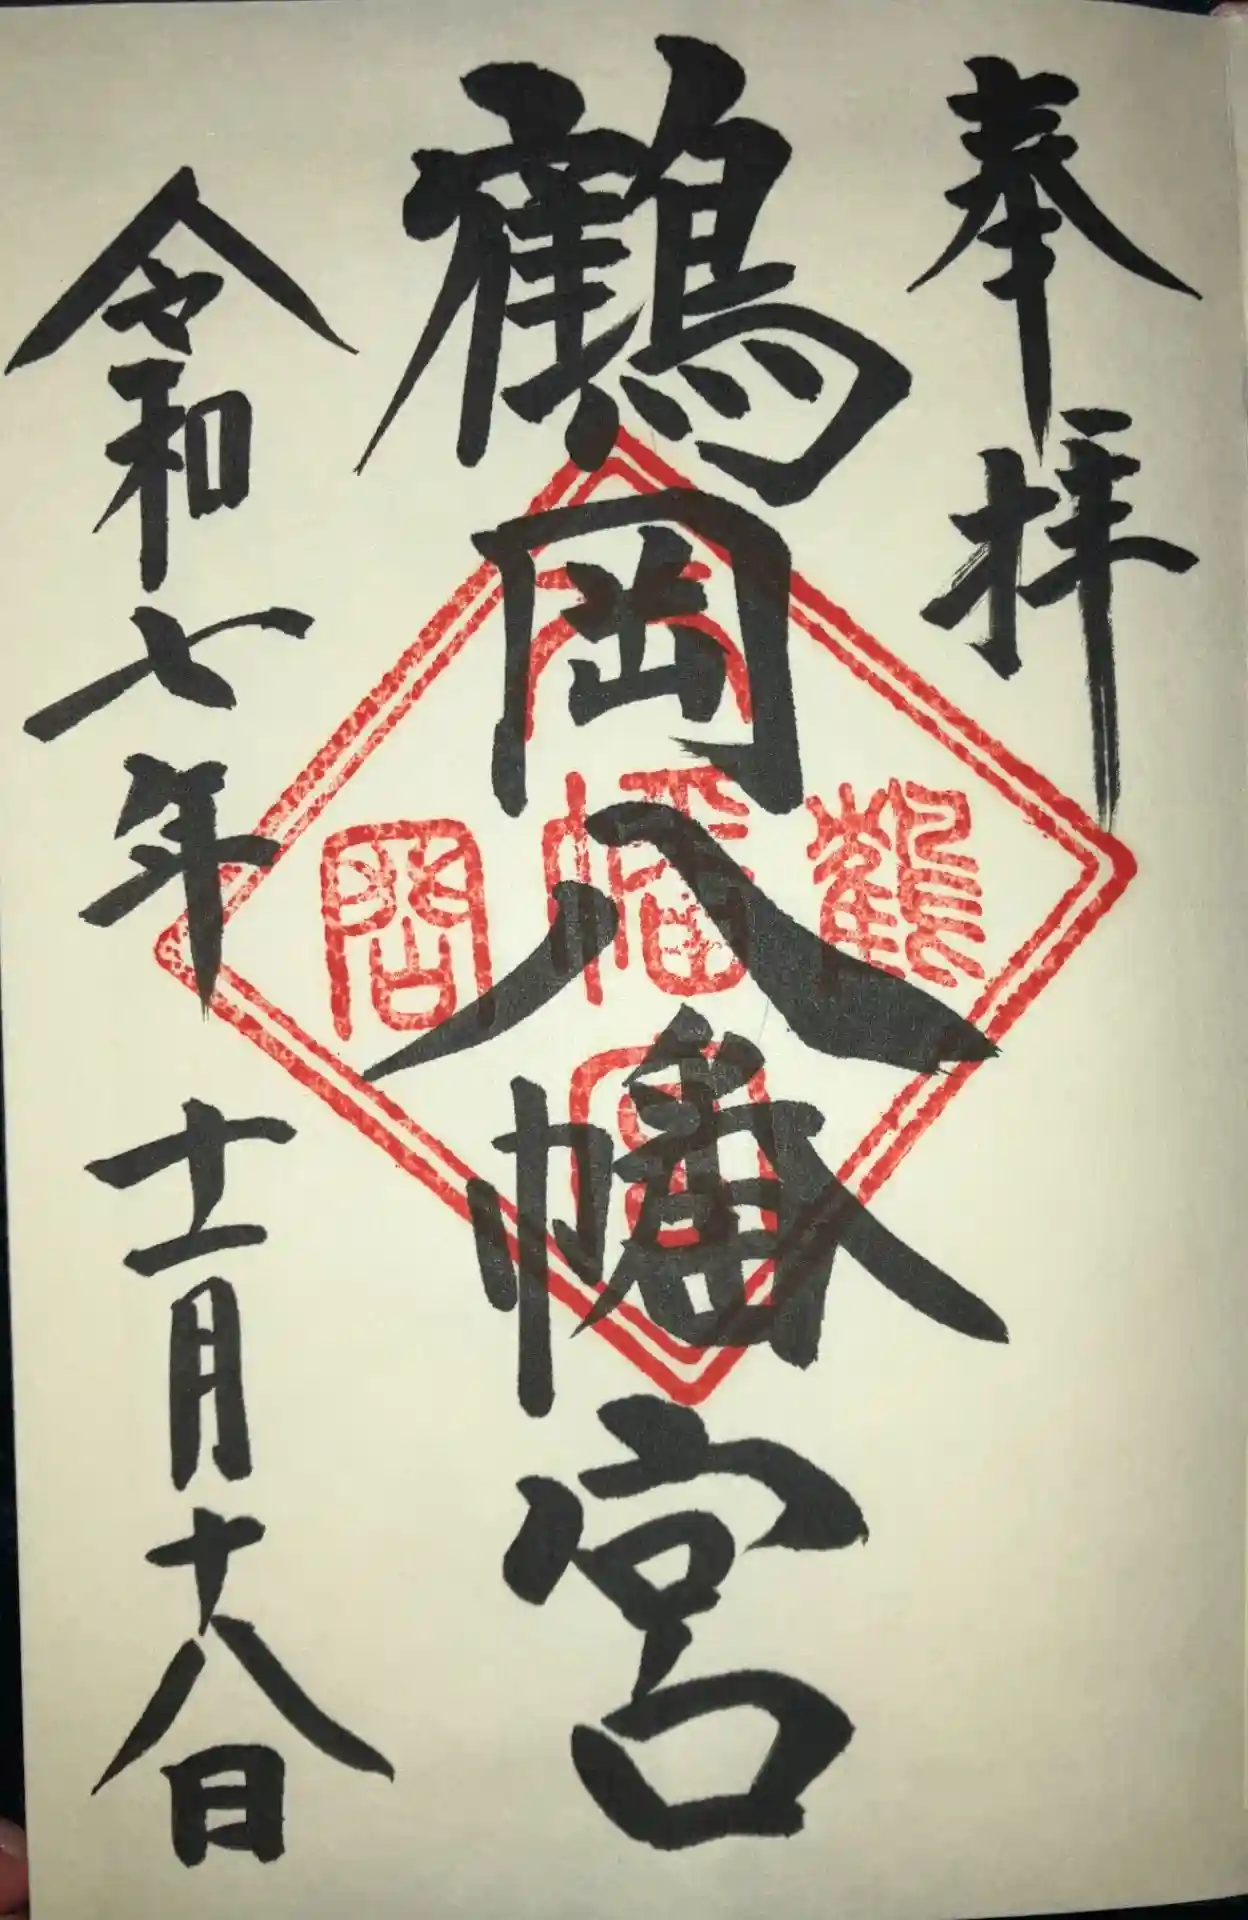 奉拝
鶴岡八幡宮
令和七年 十一月十八日
八
鶴
幡
岡
宮